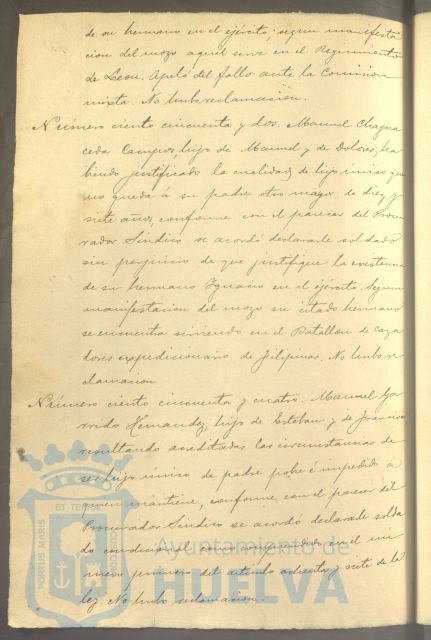 de su hermano en el ejército; segun manifesta
cion del mozo aquel sirve en el Regimiento
de Leon. Apeló del fallo ante la Comision
mixta. No hubo reclamacion.
Número ciento cincuenta y dos. Manuel Chagua
ceda Campos, hijo de Manuel y de Dolores, ha
biendo justificado la cualidad de hijo unico, que
no queda á su padre otro mayor de diez y
siete años, conforme con el parecer del Procu
rador Sindico se acordó declararle soldado
sin perjuicio de que justifique la existencia
de su hermano Ignacio en el ejército. Segun
manifestacion del mozo su citado hermano
se encuentra sirviendo en el Batallon de Caza
dores expedicionario de Filipinas. No hubo re
clamacion
Número ciento cincuenta y cuatro. Manuel Ga
rrido Hernandez, hijo de Esteban y de Francisca
resultando acreditadas las circunstancias de
ser hijo único de padre pobre é impedido á
quien mantiene, conforme con el parecer del
Procurador Sindico se acordó declararle solda
do condicional como comprendido en el nú
mero primero del articulo ochenta y siete de la
ley. No hubo reclamacion.
PORTUS MARIS ET TERRAE CUSTODIA
Ayuntamiento de
HUELVA